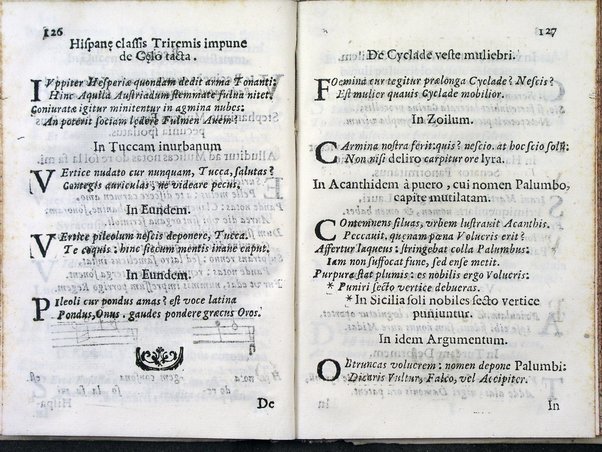 126
Hispanę classis Triremis impune
de Cęlo tacta.
IVppiter Hesperiæ quondam dedit arma Tonanti:
Hinc Aquila Austriadum stemmate fulua nitet.
Coniuratæ igitur minitentur in agmina nubes:
An poterit sociam lędere Fulmen Auem?
In Tuccam inurbanum
VErtice nudato cur nunquam, Tucca, salutas?
Contegis auriculas; ne videare pecus.
In Eundem.
VErtice pileolum nescis deponere, Tucca.
Te coquis: hinc siccum mentis inane caput.
In Eundem.
PIleoli cur pondus amas? est voce latina
Pondus, Onus. gaudes pondere græcus Oros.
De
127
De Cyclade veste muliebri.
FOemina cur tegitur prælonga Cyclade? Nescis?
Est mulier quauis Cyclade mobilior.
In Zoilum.
CArmina nostra ferit: quis? nescio. at hoc scio solū:
Non nisi deliro carpitur ore lyra.
In Acanthidem à puero, cui nomen Palumbo,
capite mutilatam.
COntemnens siluas, vrbem lustrauit Acanthis.
Peccauit. quęnam pæna Volucris erit?
Affertur laqueus: stringebat colla Palumbus:
Iam non suffocat fune, sed ense metit.
Purpura stat plumis: es nobilis ergo Volucris:
* Puniri secto vertice debueras.
*In Sicilia soli nobiles secto vertice
puniuntur.
In idem Argumentum.
OBtruncas volucrem: nomen depone Palumbi:
Dicaris Vultur, Falco, vel Accipiter.
In